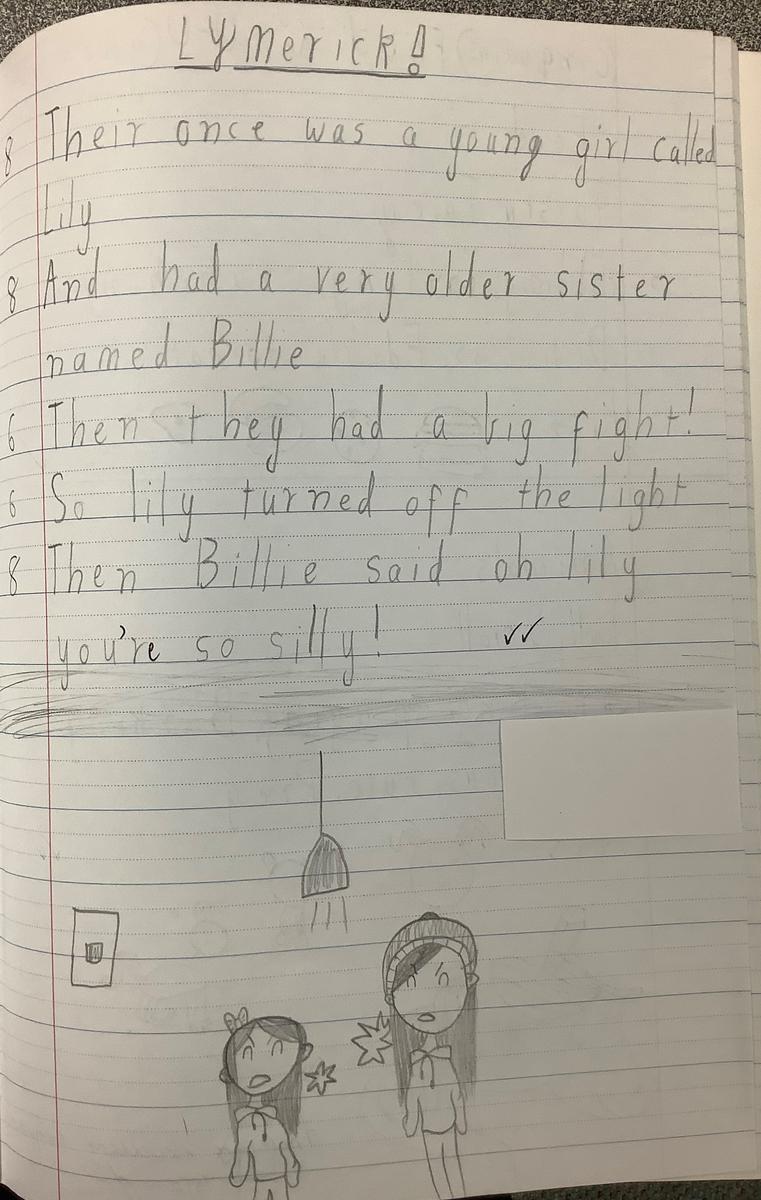 LYmerick!
8 Their once was a young girl called
Lily
8 And had a very older sister
named Billie
6 Then they had a big fight!
6 So lily turned off the light
8 Then Billie said oh lily
you're so silly!